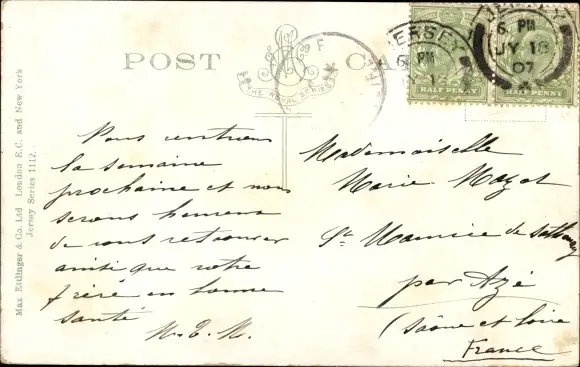 POST CA
THE ROYAL SERIES
JERSEY
6 PM
JY 18
07
JERSEY
6 PM
JY 1
HALF PENNY
HALF PENNY
Max Ettlinger & Co. Ltd London E.C. and New York
Jersey Series 1112.
Nous rentrons
la semaine
prochaine et nous
serons heureux
de vous retrouver
ainsi que votre
frère en bonne
santé
Mademoiselle
Marie
St Maurice de
par Azé
(Saône et Loire
France